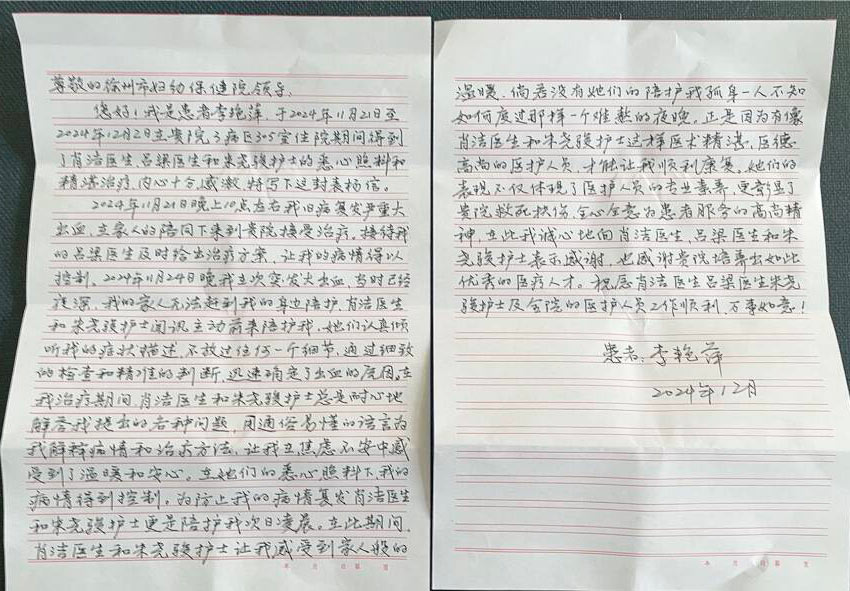 尊敬的徐州市妇幼保健院领导:
您好!我是患者李艳萍,于2024年11月21日至
2024年12月2日在贵院3病区305室住院期间得到
了肖洁医生吕梁医生和朱尧骏护士的悉心照料和
精湛治疗,内心十分感激,特写下这封表扬信。
2024年11月21日晚上10点左右我旧病复发严重大
出血,在家人的陪同下来到贵院接受治疗。接待我
的吕梁医生及时给出治疗方案,让我的病情得以
控制。2024年11月24日晚我在次突发大出血,当时已经
夜深,我的家人无法赶到我的身边陪护,肖洁医生
和朱尧骏护士闻讯主动前来陪护我,她们认真倾
听我的症状描述,不放过任何一个细节,通过细致
的检查和精准的判断,迅速确定了出血的原因。在
我治疗期间,肖洁医生和朱尧骏护士总是耐心地
解答我提出的各种问题,用通俗易懂的语言为
我解释病情和治疗方法,让我在焦虑不安中感
受到了温暖和安心。在她们的悉心照料下,我的
病情得到控制。为防止我的病情复发肖洁医生
和朱尧骏护士更是陪护我次日凌晨。在此期间,
肖洁医生和朱尧骏护士让我感受到家人般的
温暖,倘若没有她们的陪护我孤身一人不知
如何度过那样一个难熬的夜晚。正是因为有像
肖洁医生和朱尧骏护士这样医术精湛,医德
高尚的医护人员,才能让我顺利康复。她们的
表现不仅体现了医护人员的专业素养,更彰显了
贵院救死扶伤,全心全意为患者服务的高尚精
神,在此我诚心地向肖洁医生,吕梁医生和朱
尧骏护士表示感谢,也感谢贵院培养出如此
优秀的医疗人才。祝愿肖洁医生吕梁医生朱尧
骏护士及全院的医护人员工作顺利,万事如意!
患者:李艳萍
2024年12月